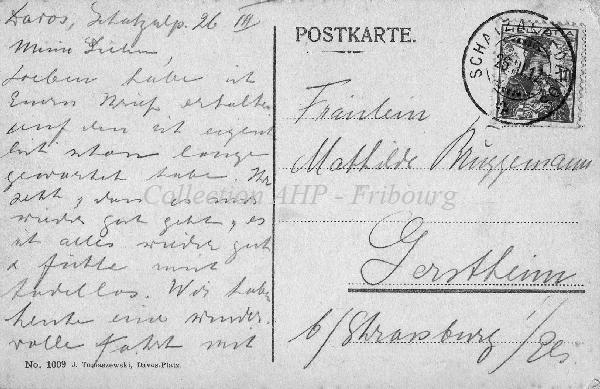 Davos, Schatzalp. 26 III
Meine Lieben
Soeben habe ich
Euern Brief erhalten
auf den ich eigent
lich schon lange
gewartet habe. Ihr
seht, dass es mir
wieder gut geht, es
ist alles wieder gut
& fühle mich
tadellos. Wir haben
heute eine wunder
volle Fahrt mit
No. 1009 J. Tomaszewski, Davos-Platz.
POSTKARTE.
SCHATZALP
Fräulein
Mathilde Bruggemann
Gerstheim
b/ Strassburg i/Els.
Collection AHP - Fribourg